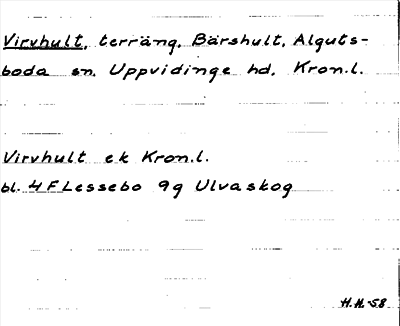 Virvhult, terräng, Bärshult, Alguts-
boda sn. Uppvidinge hd, Kron.l.
Virvhult ek Kron.l.
bl. 4 F Lessebo 9g Ulvaskog
H.H.-58